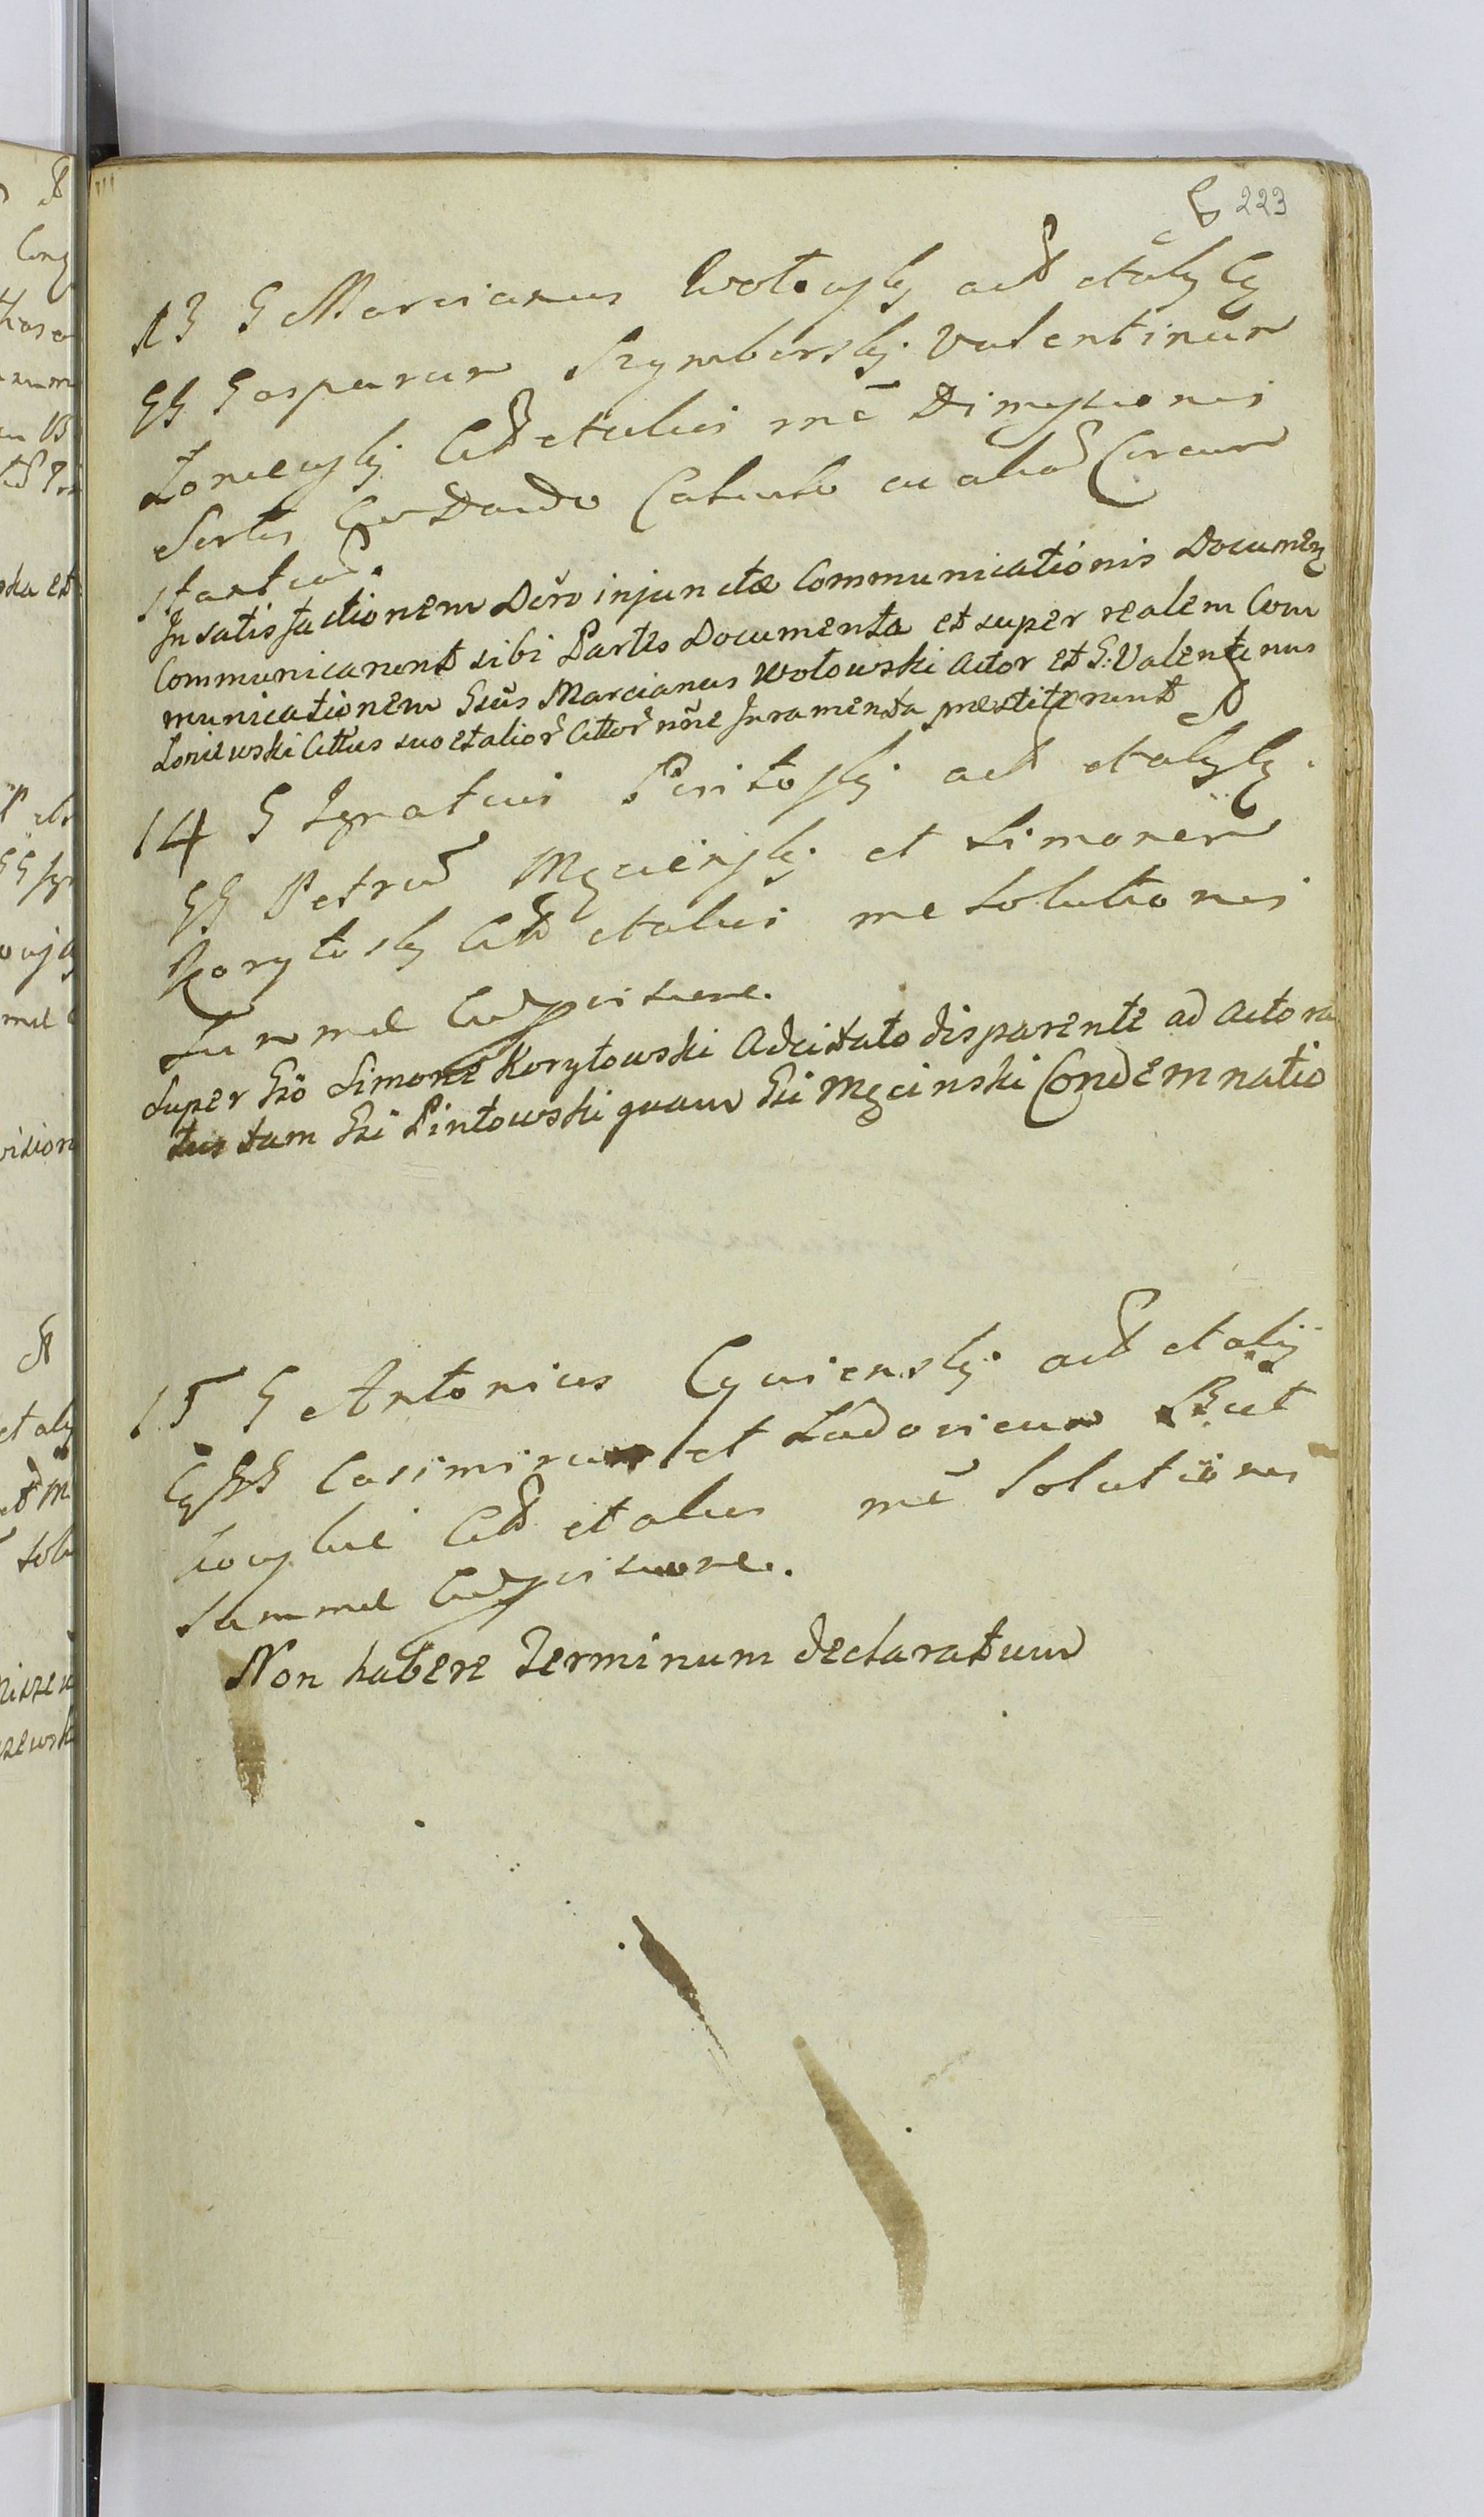 223
13 G Marcianus Wołowski act et alij Cŋ
GG Gasparum Szymborski Valentinum
Łoniewski Citt et alios rnē Dimissionis
Sortis Cum Dando Calculo cu alia Circum
stantia.
In satisfactionem Dēro injunctæ Communicationis Documen
Communicarunt sibi Partes Documenta et super realem Com
municationem Gsūs Marcianus Wołowski Actor et G: Valentinus
Łoniewski Cittus suo et alior Cittor nōne Juramenta prestiterunt
14 G Ignatius Pintoski act et alij Cŋ
GG Petrum Męcinski et Simonem
Korytoski Citt et alios rne Solutionis
Summæ
Super Gso Simone Korytowski Adcitato disparente ad Actora
tus tam Gsi Pintowski quam Gsi Męcinski Condemnatio
15 G Antonius act et alij
Cŋ GG Casimirum et Ludovicum But
Citt et alios rnē Solutionis
Summæ
Non habere Terminum declaratum